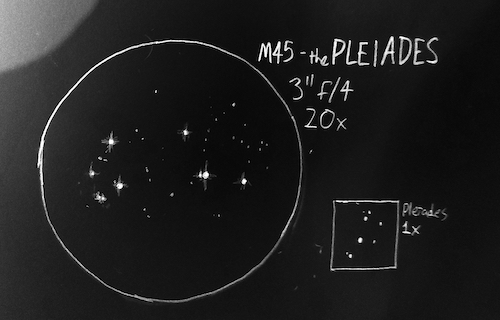 M45 - the PLEIADES
3" f/4
20x
Pleiades
1x